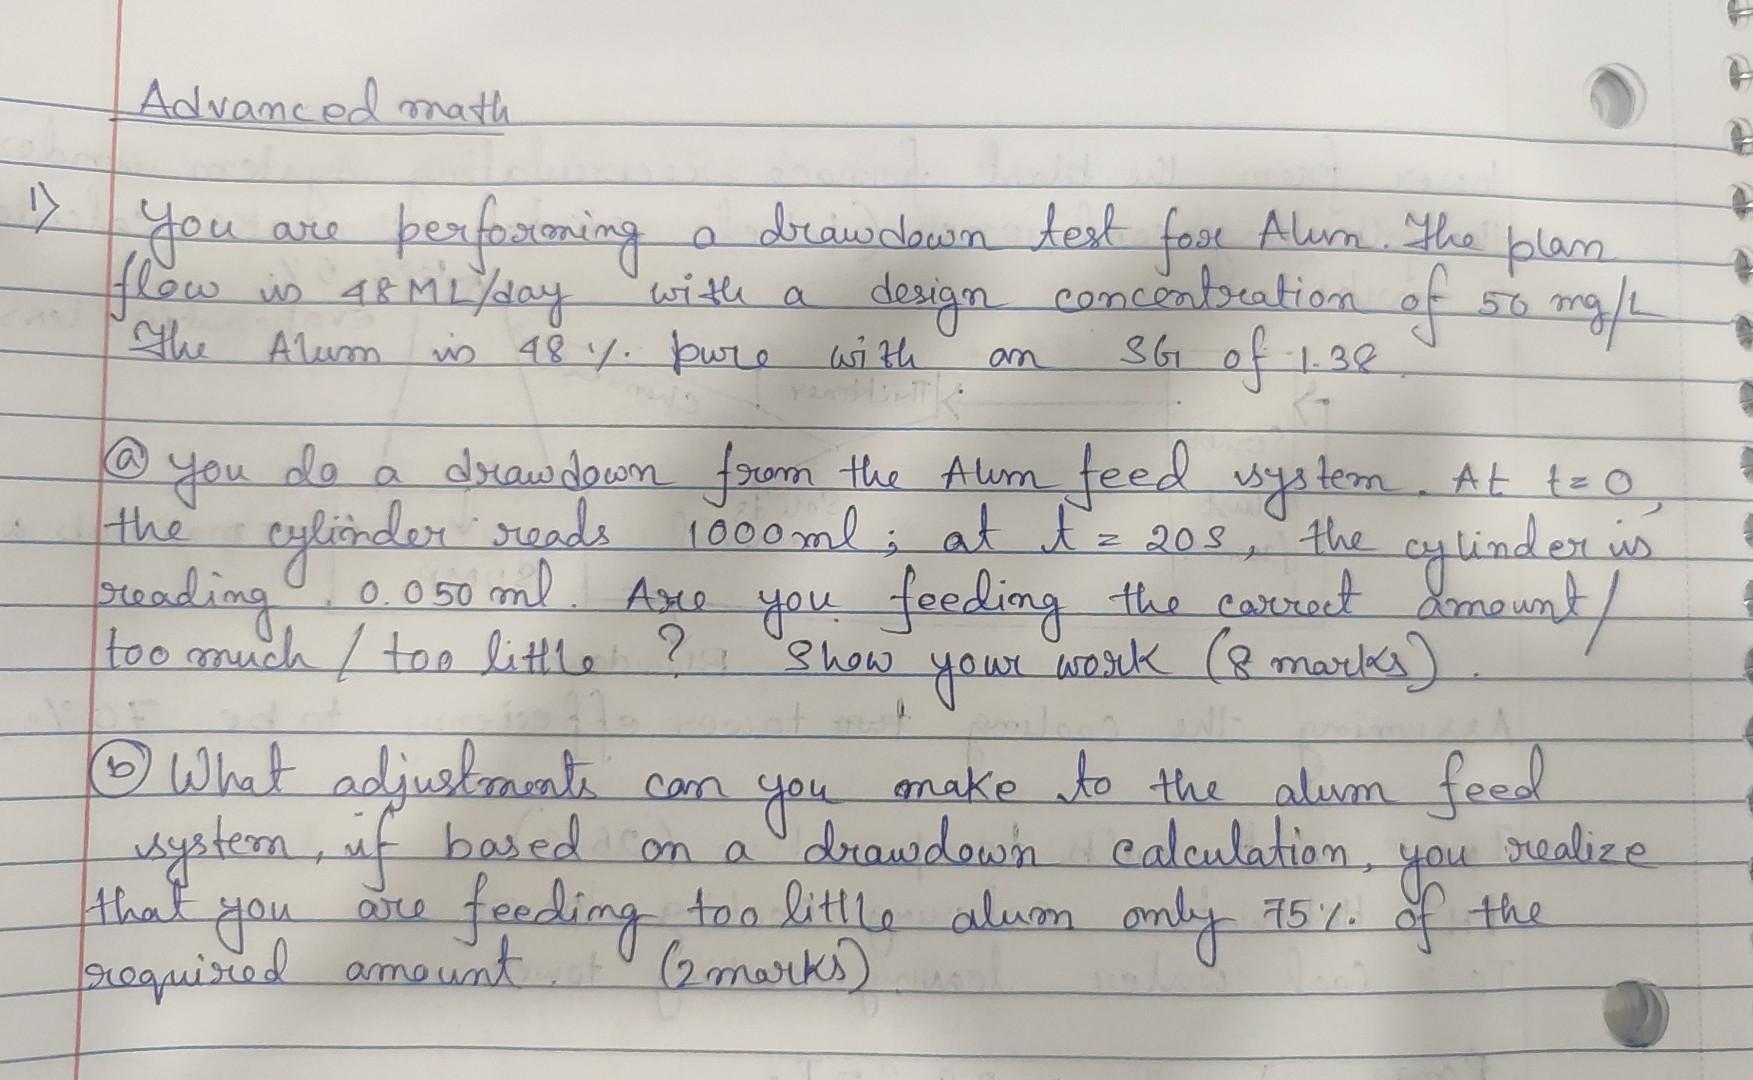 Advanced math
1) You are performing a drawdown test for Alum. The plan
flow is 48 ML/day with a design concentration of 50 mg/L
The Alum is 48 % pure with an SG of 1.38
(a) you do a drawdown from the Alum feed system. At t=0,
the cylinder reads 1000ml; at t = 20s, the cylinder is
reading 0.050 ml. Are you feeding the correct amount/
too much / too little ? Show your work (8 marks).
(b) What adjustments can you make to the alum feed
system, if based on a drawdown calculation, you realize
that you are feeding too little alum only 75% of the
required amount. (2 marks)